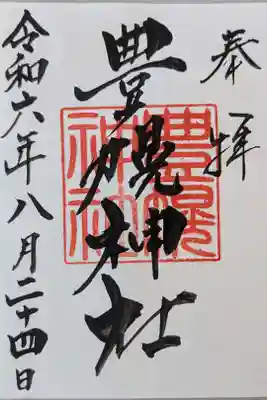 奉拝
豊幌神社
豊幌神社
令和六年八月二十四日